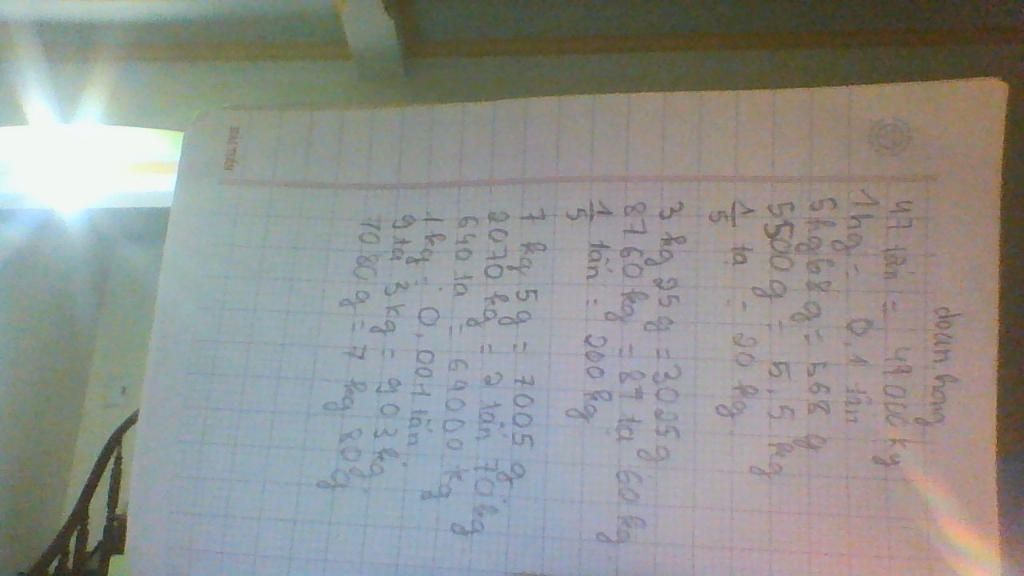 47 tấn = 47000 kg
1 kg = 0,1 tấn
5 kg 68 g = 568 g
5500 g = 5,5 kg
1/5 tạ = 20 kg
3 kg 95 g = 3095 g
8760 kg = 87 tạ 60 kg
1/5 tấn = 200 kg
7 kg 5 g = 7005 g
2070 kg = 2 tấn 70 kg
640 tạ = 64000 kg
1 kg = 0,001 tấn
9 tạ 3 kg = 903 kg
7080 g = 7 kg 80 g